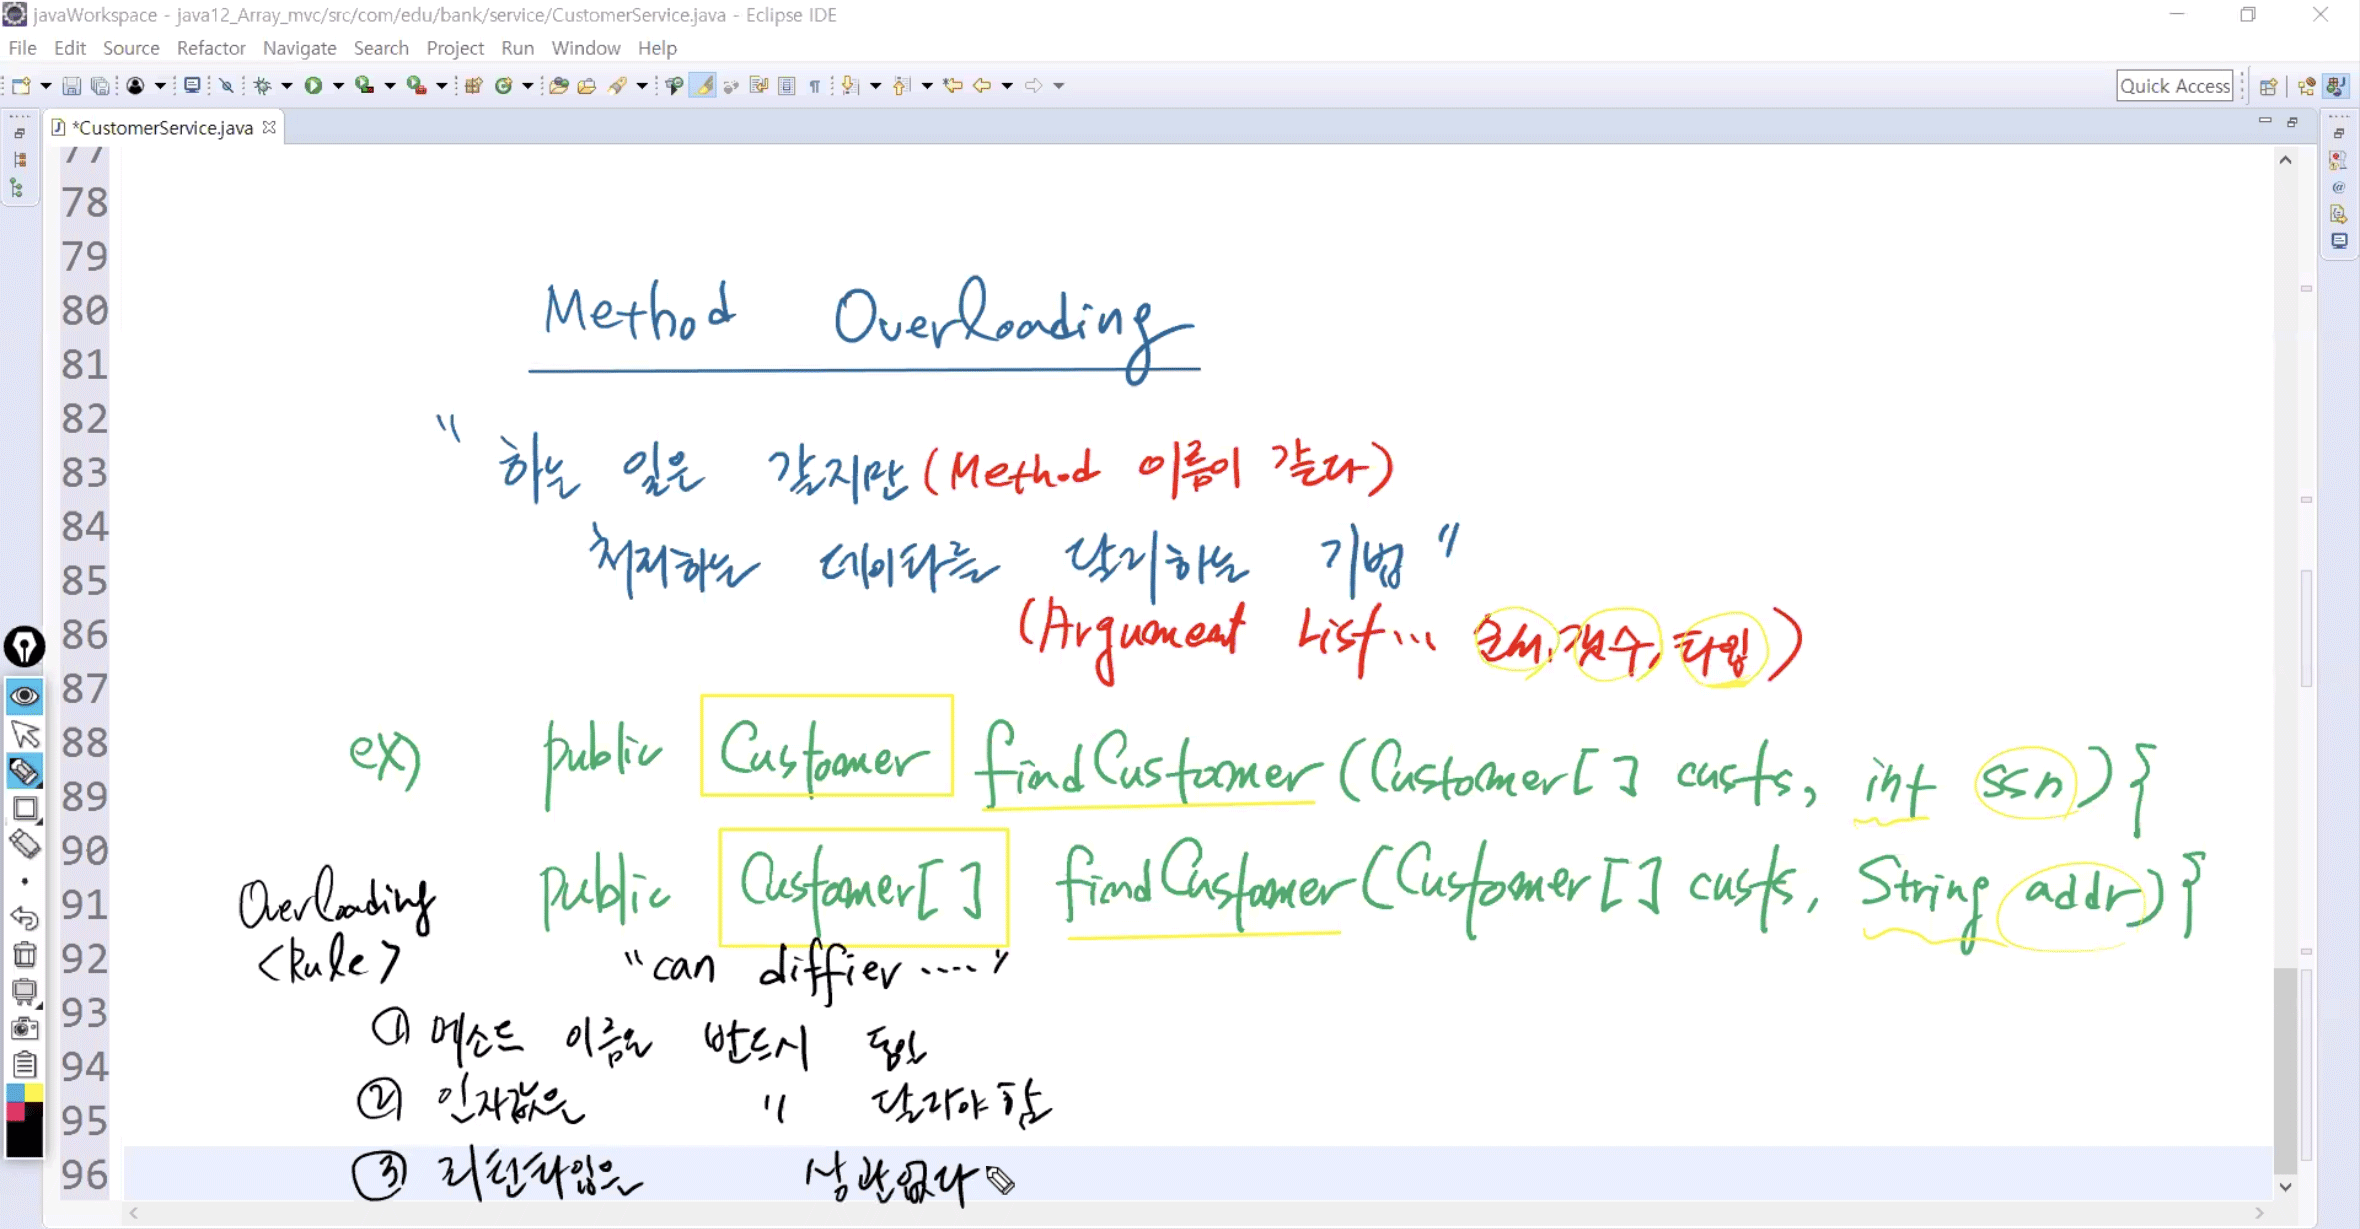 javaWorkspace - java12_Array_mvc/src/com/edu/bank/service/CustomerService.java - Eclipse IDE
File Edit Source Refactor Navigate Search Project Run Window Help
Quick Access
*CustomerService.java
77
78
79
80 Method Overloading
81
82
83 " 하는 일은 같지만 (Method 이름이 같다)
84
85 처리하는 데이타를 달리하는 기법 "
86 (Argument List... 순서, 갯수, 타입)
87
88 ex) public Customer findCustomer (Customer[] custs, int ssn) {
89
90
91 public Customer[] findCustomer (Customer[] custs, String addr) }
Overloading
92 <Rule> "can diffier ...."
93 ① 메소드 이름은 반드시 동일
94
95 ② 인자값은 " 달라야 함
96 ③ 리턴타입은 상관없다